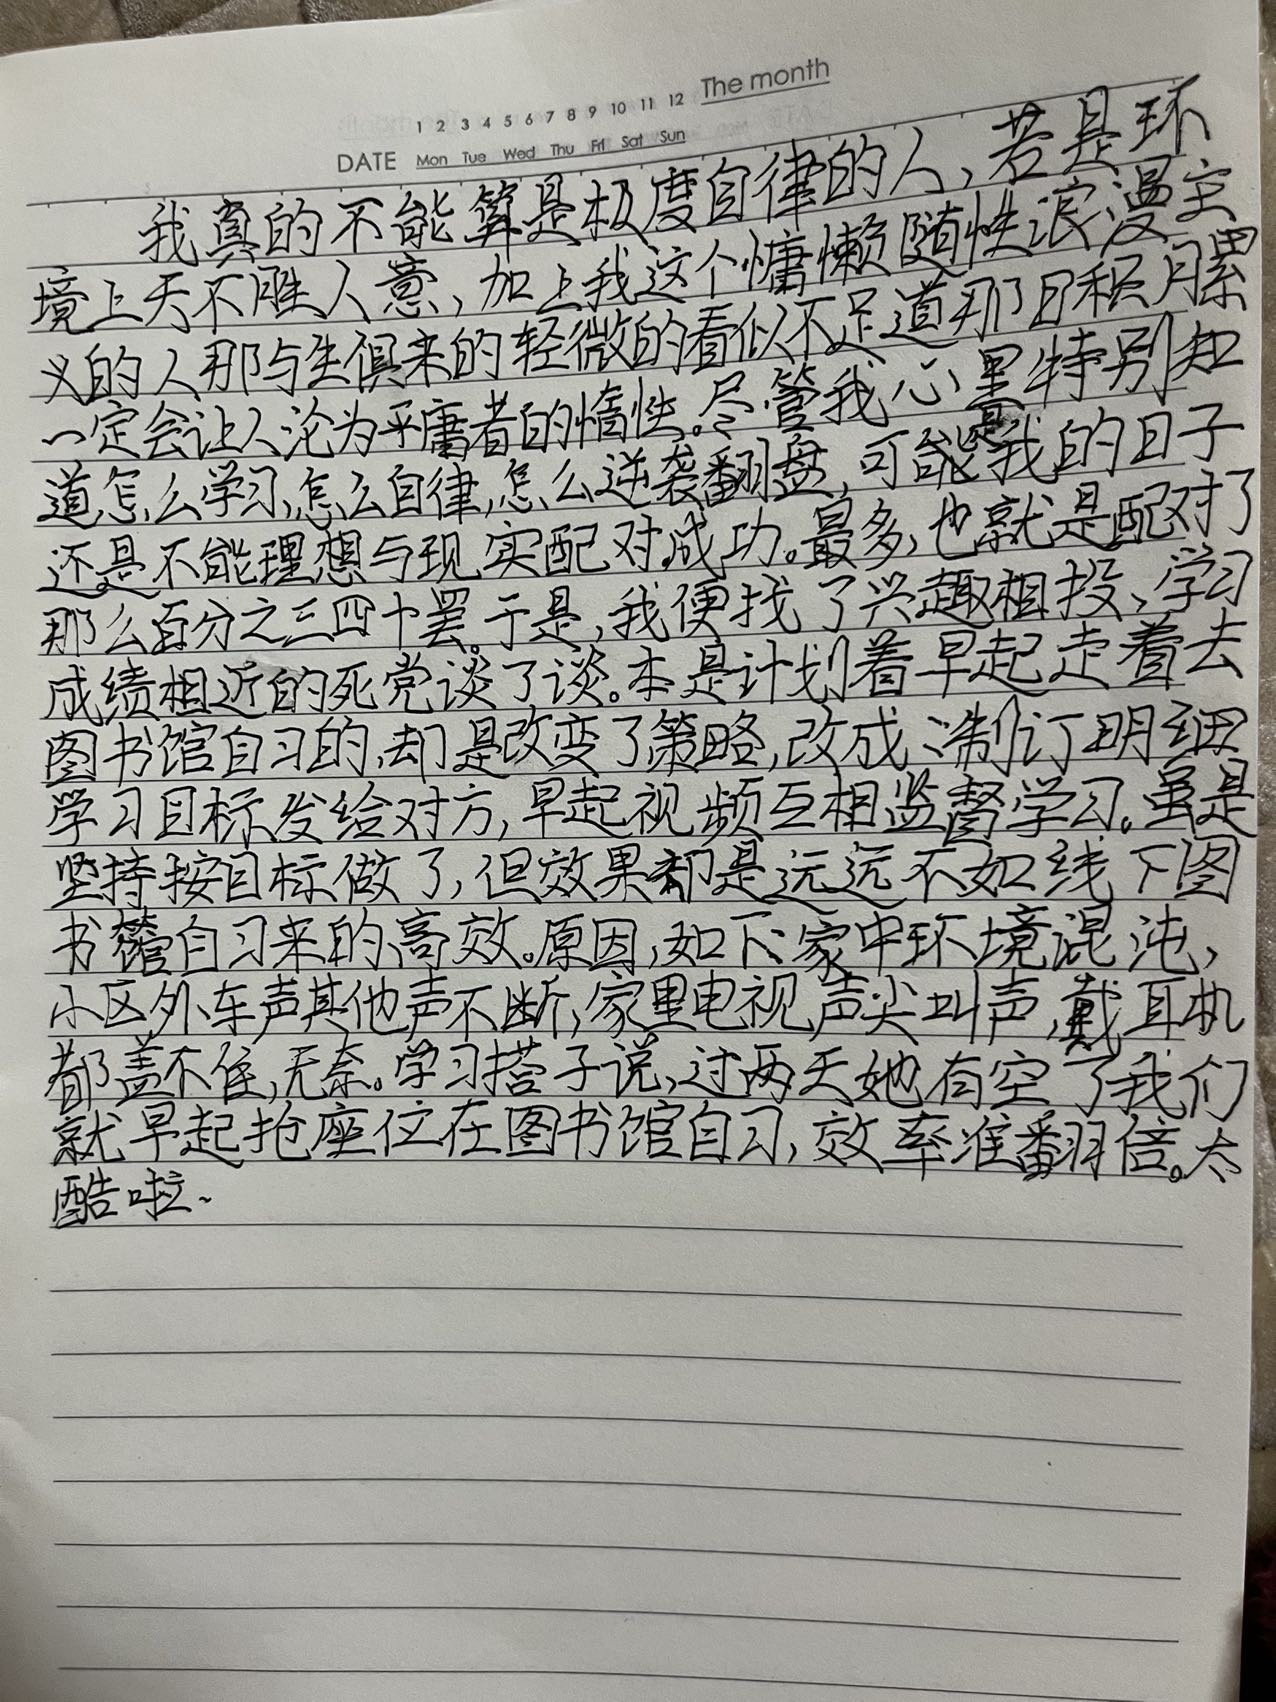 1 2 3 4 5 6 7 8 9 10 11 12 The month
DATE Mon Tue Wed Thu Fri Sat Sun
我真的不能算是极度自律的人，若是环
境上天不胜人意，加上我这个慵懒随性浪漫主
义的人那与生俱来的轻微的看似不足道那日积月累
一定会让人沦为平庸者的惰性。尽管我心里特别知
道怎么学习，怎么自律，怎么逆袭翻盘，可能我的日子
还是不能理想与现实配对成功。最多，也就是配对了
那么百分之三四十罢。于是，我便找了兴趣相投、学习
成绩相近的死党谈了谈。本是计划着早起走着去
图书馆自习的，却是改变了策略，改成制订明细
学习目标发给对方，早起视频互相监督学习。虽是
坚持按目标做了，但效果却是远远不如线下图
书馆自习来的高效。原因，如下：家中环境混沌，
小区外车声其他声不断，家里电视声尖叫声，戴耳机
都盖不住，无奈。学习搭子说，过两天她有空了我们
就早起抢座位在图书馆自习，效率准翻倍。太
酷啦~